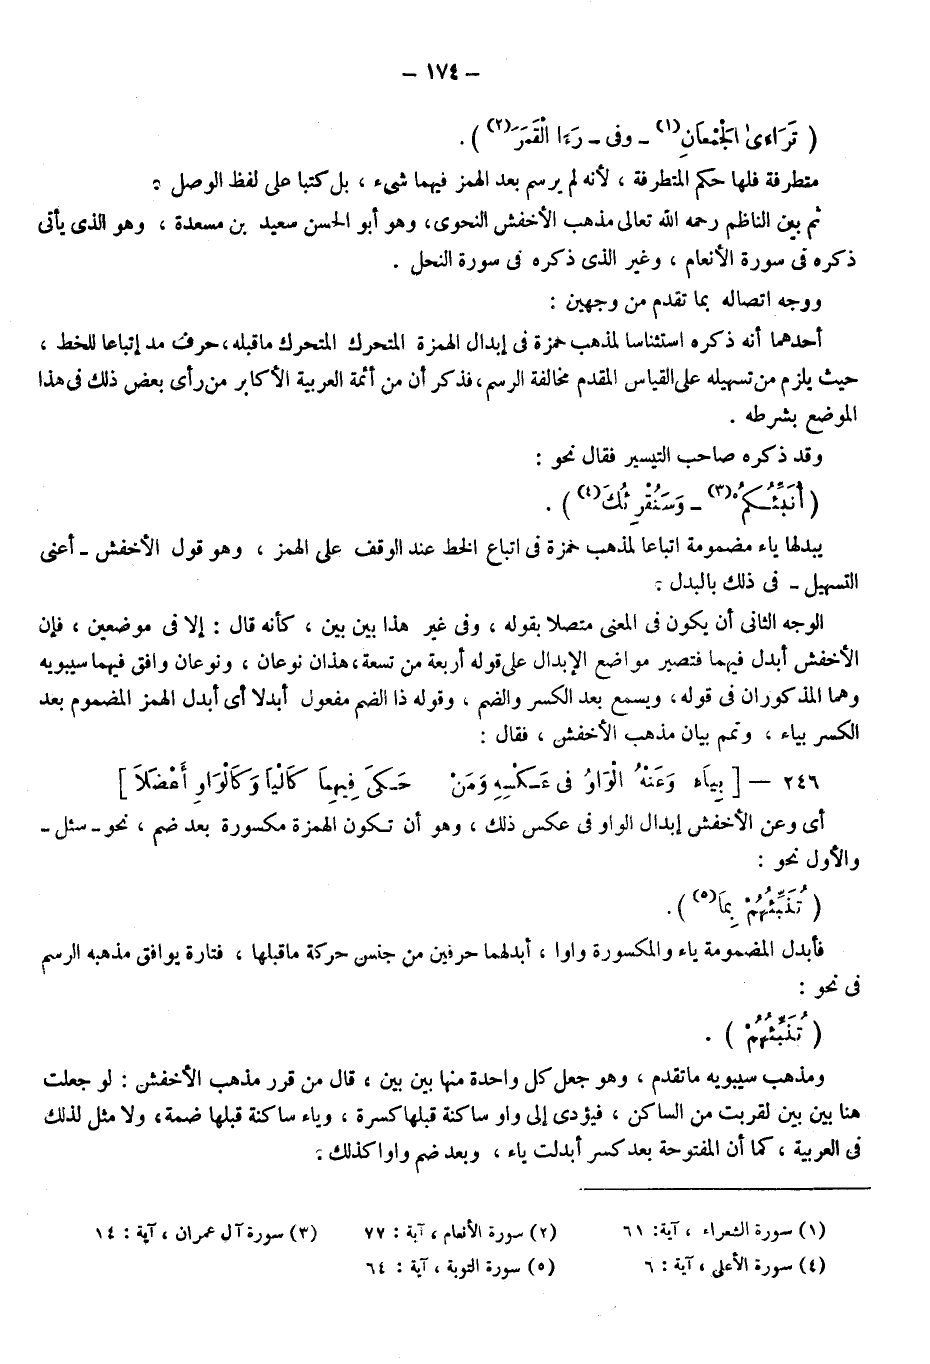 – ١٧٤ –
( تَرَاءىٰ الْجَمْعانِ(١) ـ وفى ـ رَءَا الْقَمَرَ(٢) ) .
متطرفة فلها حكم المتطرفة ، لأنه لم يرسم بعد الهمز فيهما شىء ، بل كتبا على لفظ الوصل :
ثم بين الناظم رحمه الله تعالى مذهب الأخفش النحوى، وهو أبو الحسن سعيد بن مسعدة ، وهو الذى يأتى
ذكره فى سورة الأنعام ، وغير الذى ذكره فى سورة النحل .
ووجه اتصاله بما تقدم من وجهين :
أحدهما أنه ذكره استئناسا لمذهب حمزة فى إبدال الهمزة المتحرك المتحرك ماقبله، حرف مد إتباعا للخط ،
حيث يلزم من تسهيله على القياس المقدم مخالفة الرسم، فذكر أن من أئمة العربية الأكابر من رأى بعض ذلك فى هذا
الموضع بشرطه .
وقد ذكره صاحب التيسير فقال نحو :
( أُنَبِّئُـكُمْ(٣) ـ وَسَنُقْرِئُكَ(٤) ) .
يبدلها ياء مضمومة اتباعا لمذهب حمزة فى اتباع الخط عند الوقف على الهمز ، وهو قول الأخفش ـ أعنى
التسهيل ـ فى ذلك بالبدل :
الوجه الثانى أن يكون فى المعنى متصلا بقوله ، وفى غير هذا بين بين ، كأنه قال : إلا فى موضعين ، فإن
الأخفش أبدل فيهما فتصير مواضع الإبدال على قوله أربعة من تسعة، هذان نوعان ، ونوعان وافق فيهما سيبويه
وهما المذكوران فى قوله، ويسمع بعد الكسر والضم ، وقوله ذا الضم مفعول أبدلا أى أبدل الهمز المضموم بعد
الكسر بياء ، وتمم بيان مذهب الأخفش ، فقال :
٢٤٦ — [ بِياَء وَعَنْهُ الْوَاوُ فى عَـكْسِهِ وَمَنْ حَـكىَ فِيهِماَ كَالْياَ وَكَالْوَاوِ أَعْضَلاَ ]
أى وعن الأخفش إبدال الواو فى عكس ذلك ، وهو أن تـكون الهمزة مكسورة بعد ضم ، نحو ـ سئل ـ
والأول نحو :
( تُنَبِّئُهُمْ بِماَ(٥) ) .
فأبدل المضمومة ياء والمكسورة واوا ، أبدلهما حرفين من جنس حركة ماقبلها ، فتارة يوافق مذهبه الرسم
فى نحو :
( تُنَبِّئُهُمْ ) .
ومذهب سيبويه ماتقدم ، وهو جعل كل واحدة منها بين بين ، قال من قرر مذهب الأخفش : لو جعلت
هنا بين بين لقربت من الساكن ، فيؤدى إلى واو ساكنة قبلها كسرة ، وياء ساكنة قبلها ضمة، ولا مثل لذلك
فى العربية ، كما أن المفتوحة بعد كسر أبدلت ياء ، وبعد ضم واوا كذلك :
(١) سورة الشعراء ، آية: ٦١ (٢) سورة الأنعام ، آية : ٧٧ (٣) سورة آل عمران ، آية : ١٤
(٤) سورة الأعلى ، آية : ٦ (٥) سورة التوبة ، آية : ٦٤